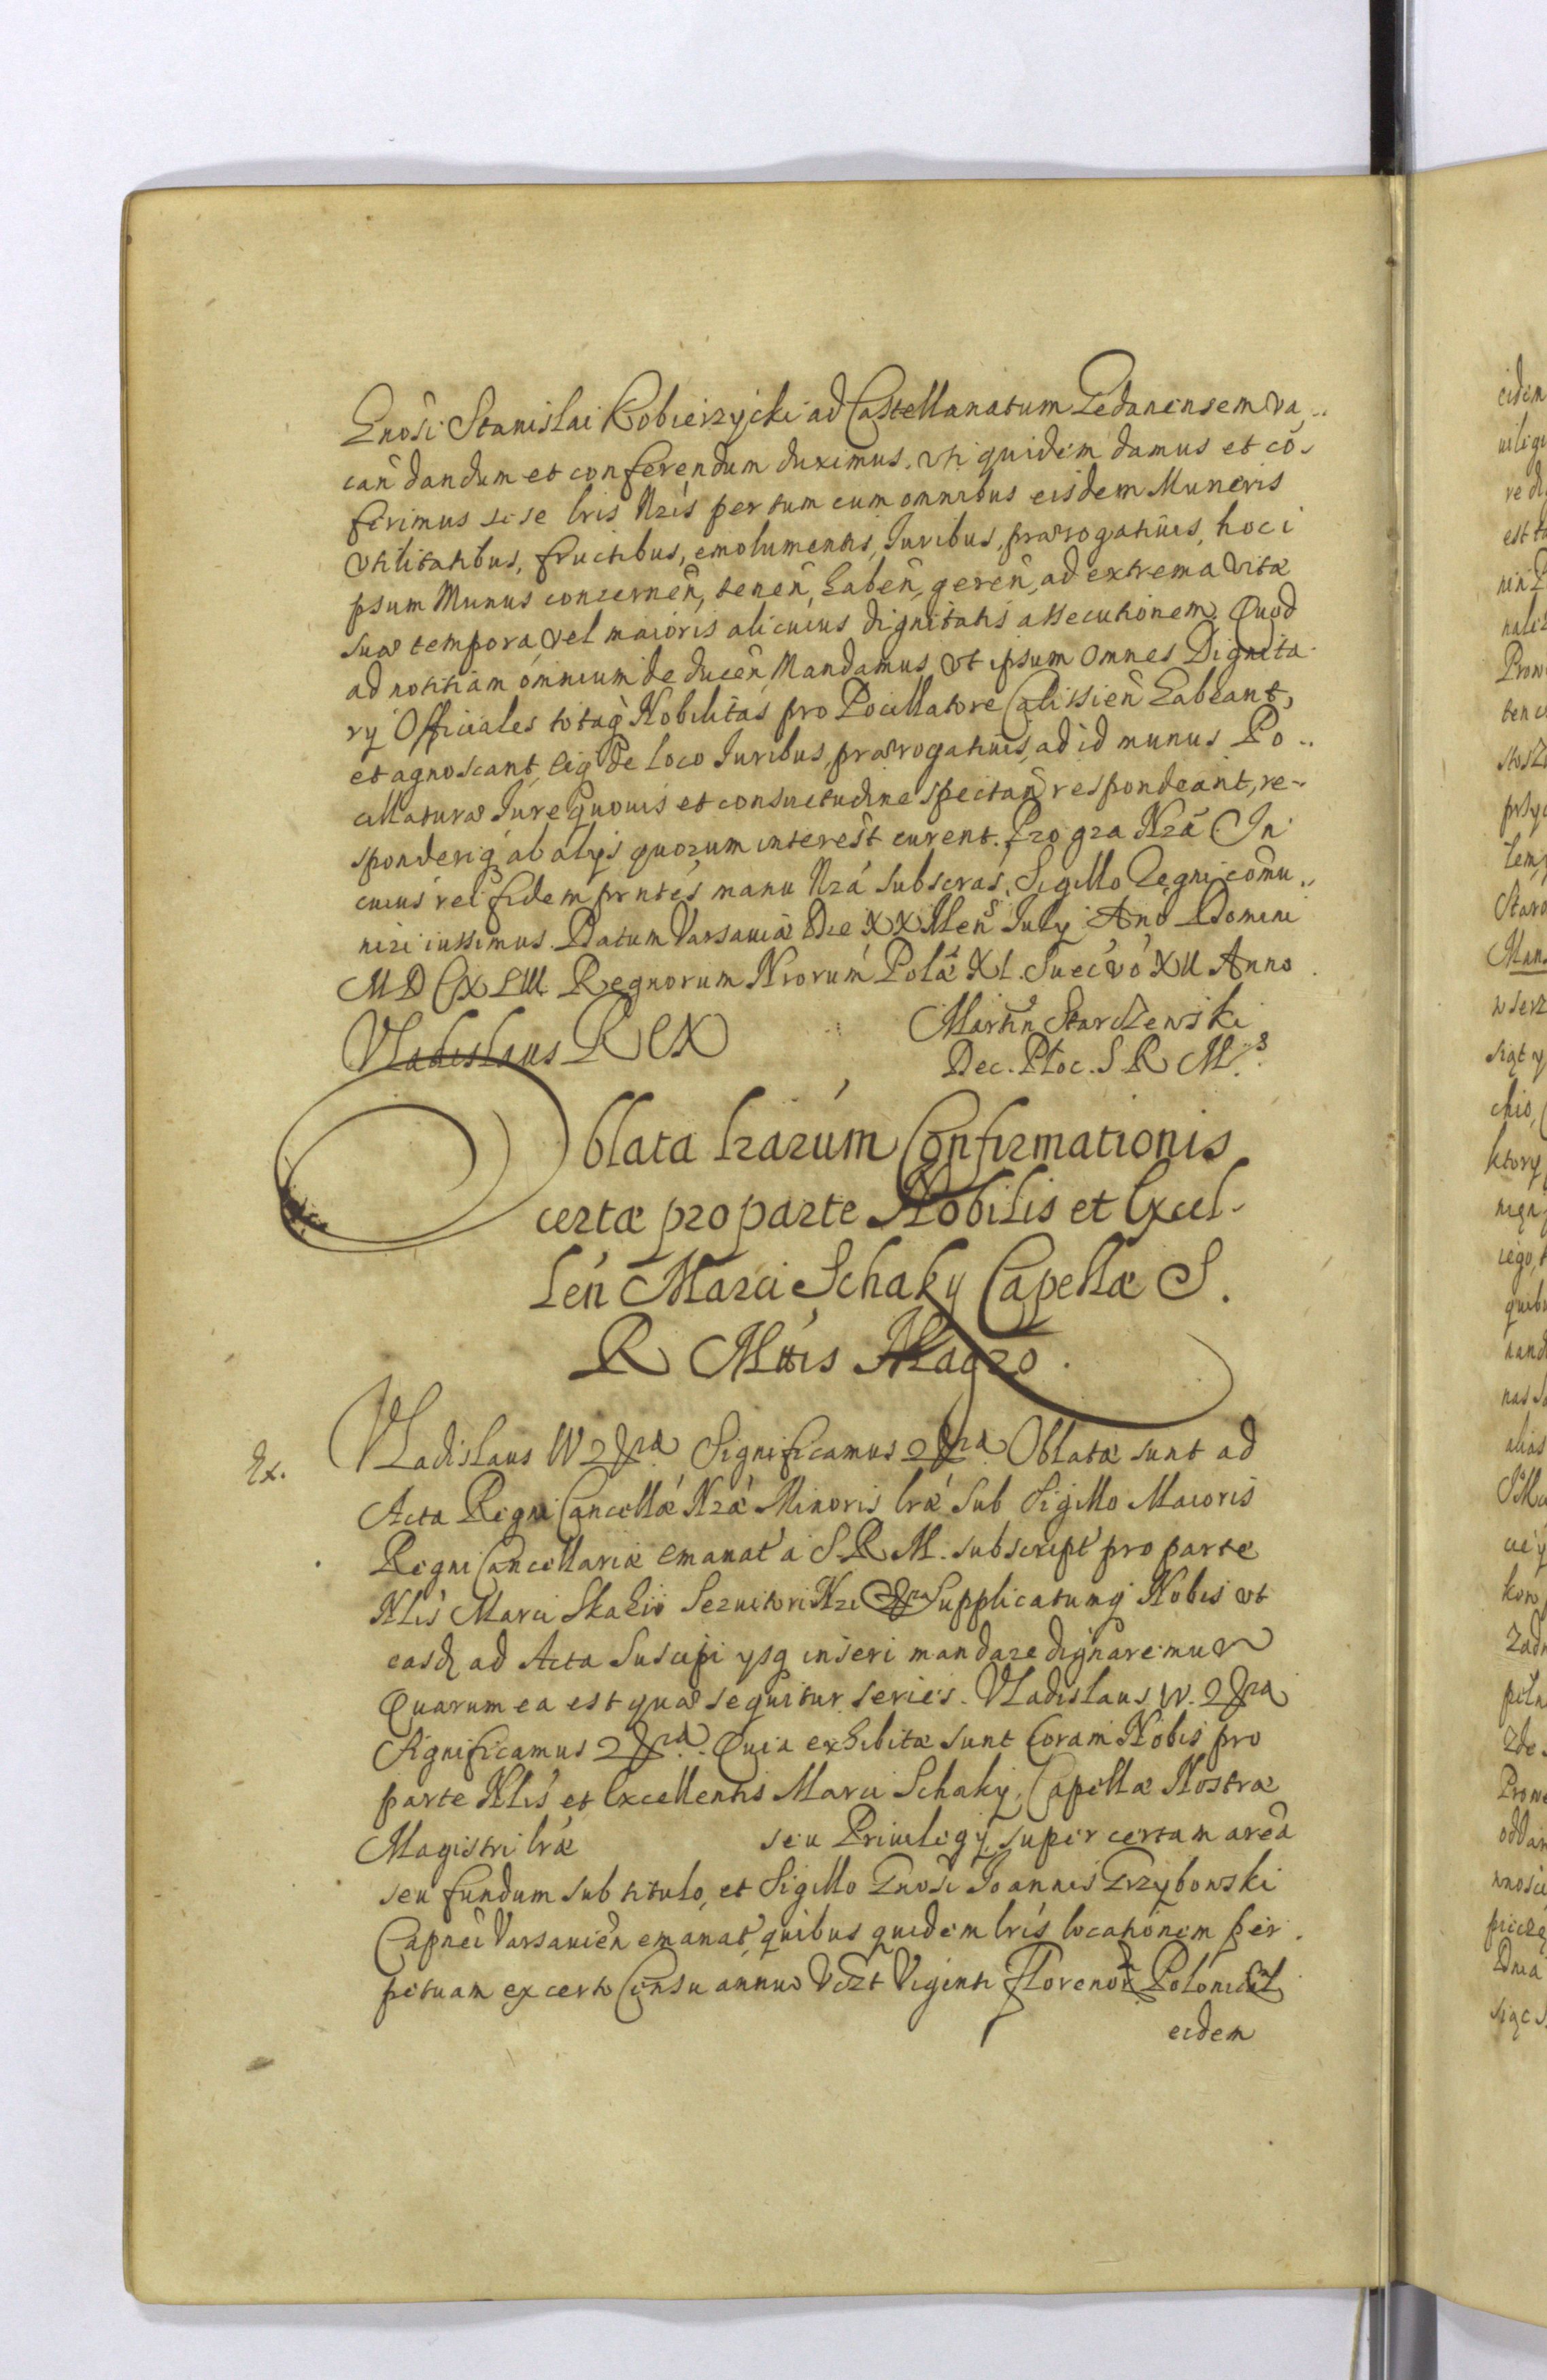 Gnosi Stanislai Kobierzycki ad Castellanatum Gedanensem va..
can dandum et conferendum duximus. vti quidem damus et cō,
ferimus hisce lris Nris pertum cum omnibus eisdem Muneris
vtilitatibus, fructibus, emolumentis, Iuribus, prærogatiuis, hoc i
psum Munus concernen, tenen, haben, geren, ad extrema vitæ
suæ tempora, vel maioris alicuius dignitatis assecutionem. Quod
ad notitiam omnium deducen, Mandamus, vt ipsum omnes Dignita
rÿ Officiales totaq Nobilitas pro Pocillatore Calissien habeant,
et agnoscant, eiq de loco Iuribus, prærogatiuis, ad id munus Po..
cillaturæ Iure quouis et consuetudine spectan respondeant, re-
sponderiq ab alÿs quorum interest curent. Pro gra Nra. In
cuius rei fidem prntes manu Nra subscras, Sigillo Regni comu..
niri iussimus. Datum Varsauiæ Die XX Mens Julÿ Ano Domini
MDCXLIII. Regnorum Nrorum Polæ XI. Sueč vo XII Anno
Vladislaus Rex
Martin Starczewski
Dec. Ploc. S R M.
Oblata lrarum Confirmationis
certæ pro parte Nobilis et Excel-
len Marci Schaky Capellæ S.
R Mttis Magro.
Ex.
Vladislaus IV &c. Significamus &c. Oblatæ sunt ad
Acta Regni Cancellæ Nræ Minoris lræ sub Sigillo Maioris
Regni Cancellariæ emanat a S. R. M. subscript pro parte
Nlis Marci Skahio Seruitori Nri Supplicatumq Nobis vt
easd ad Acta suscipi ÿsq inseri mandare dignaremur
Quarum ea est quæ sequitur series. Vladislaus IV. &c.
Significamus &c. Quia exhibitæ sunt Coram Nobis pro
parte Nlis et Excellentis Marci Schakÿ, Capellæ Nostræ
Magistri lræ seu Priuilegÿ super certam area
seu fundum sub titulo, et Sigillo Gnosi Joannis Grzybowski
Capnei Varsauien emanat, quibus quidem lris locationem per.
petuam ex certo Censu annuo Vczt Viginti Florenor Polonical
eidem